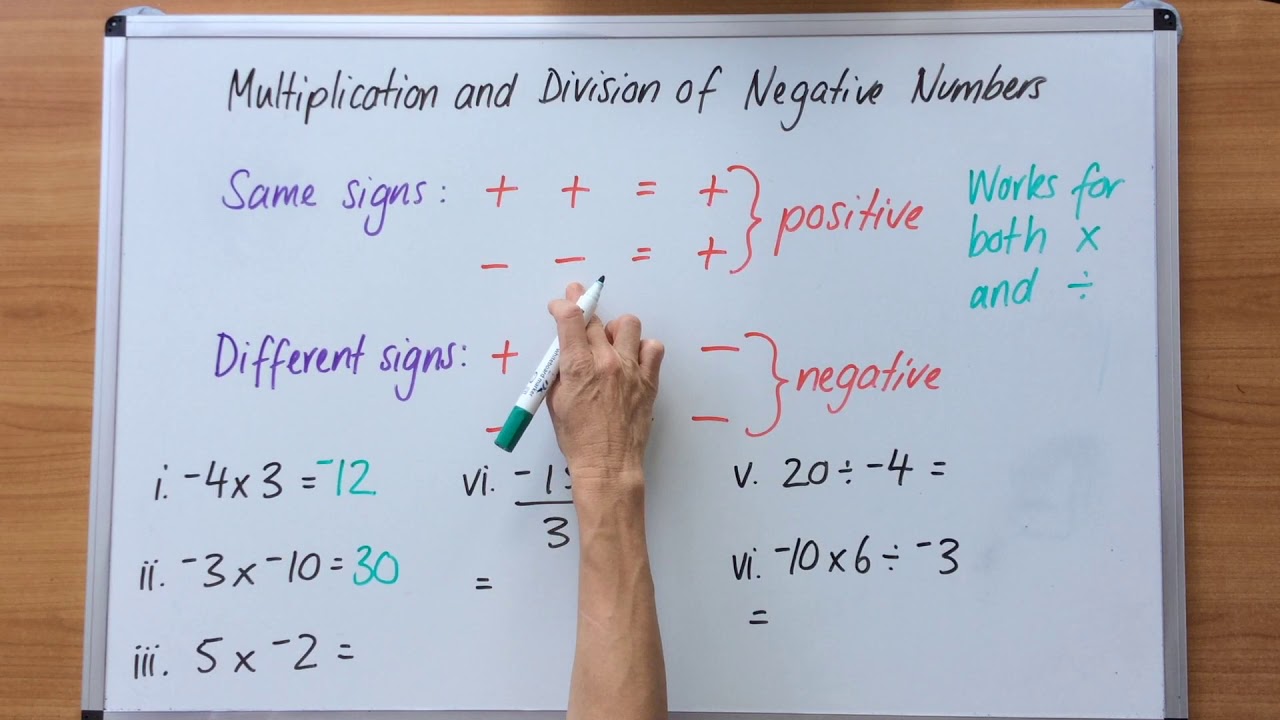 Multiplication and Division of Negative Numbers
Same signs: + + = + } positive
− − = +
Works for
both ×
and ÷
Different signs: + − } negative
− −
i. ⁻4 × 3 = ⁻12
ii. ⁻3 × ⁻10 = 30
iii. 5 × ⁻2 =
vi. ⁻1
3
=
v. 20 ÷ ⁻4 =
vi. ⁻10 × 6 ÷ ⁻3
=